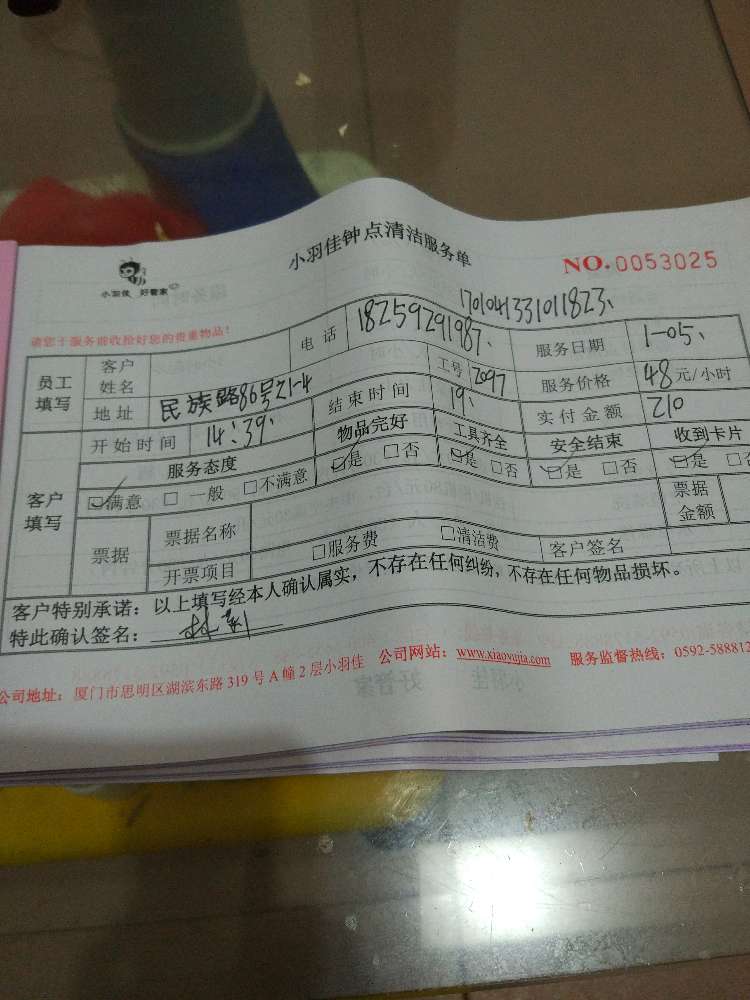 小羽佳钟点清洁服务单
NO.0053025
小羽佳 好管家
1701041331011823、
请您于服务前收拾好您的贵重物品!
员工填写 客户姓名 电话 18259291987、 服务日期 1-05、
地址 民族路86号21-4 工号 2097 服务价格 48元/小时
开始时间 14:39、 结束时间 19: 实付金额 210
客户填写 服务态度 物品完好 工具齐全 安全结束 收到卡片
☑满意 □一般 □不满意 ☑是 □否 ☑是 □否 ☑是 □否 ☑是 □
票据 票据名称 票据金额
开票项目 □服务费 □清洁费 客户签名
客户特别承诺：以上填写经本人确认属实，不存在任何纠纷，不存在任何物品损坏。
特此确认签名：
公司地址：厦门市思明区湖滨东路 319 号 A 幢 2 层小羽佳 公司网站：www.xiaoyujia.com 服务监督热线：0592-588812